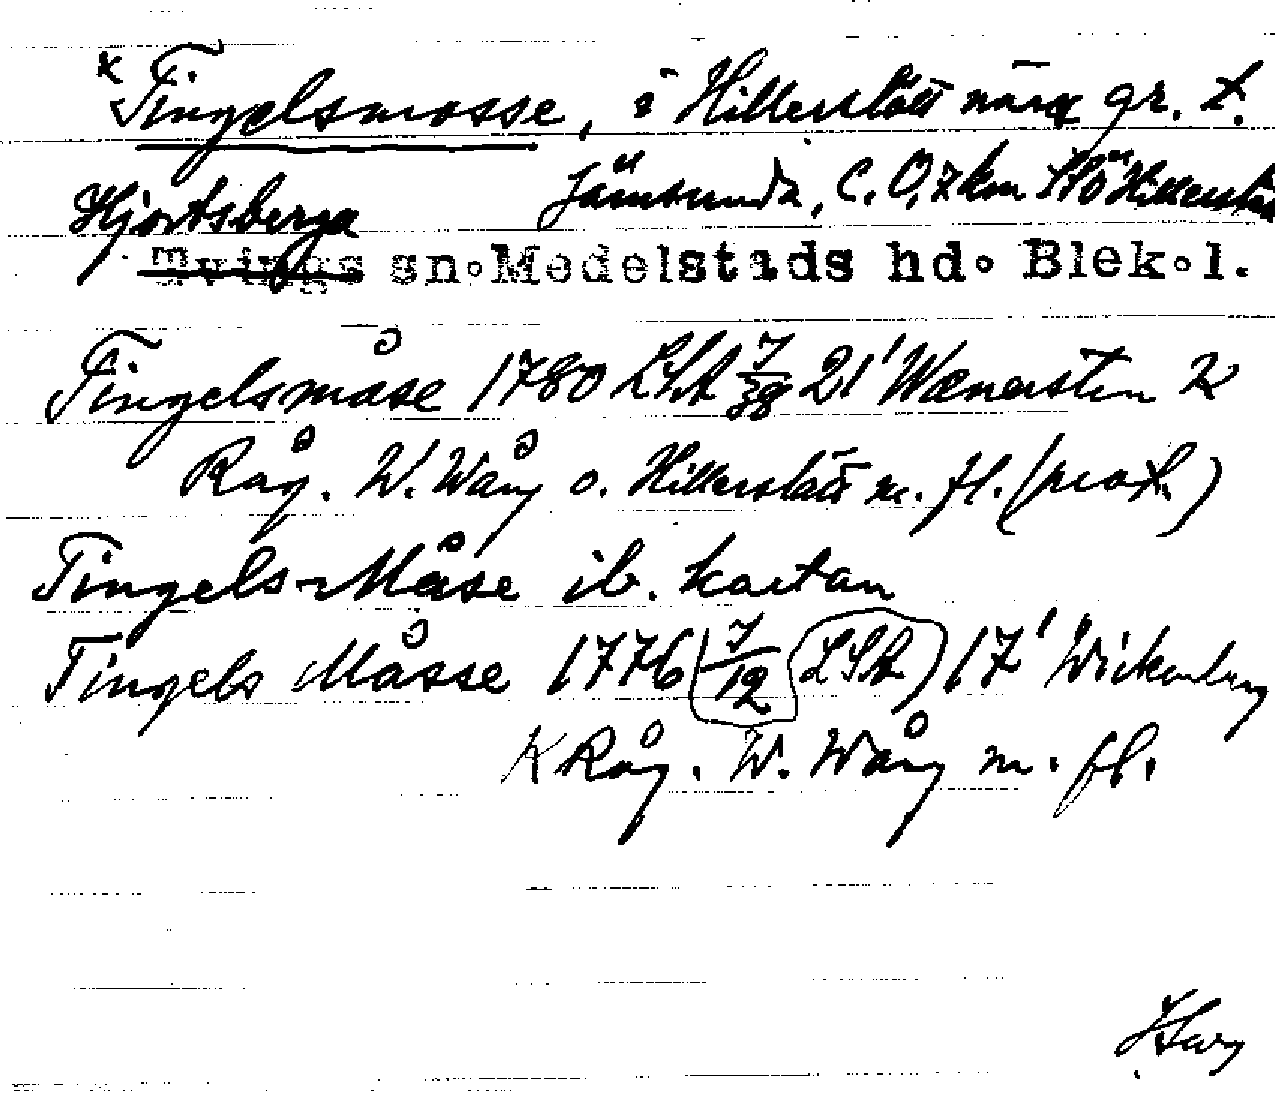 * Tingelsmosse, i Hillerslätt nära gr. t.
Jämsunda, c. 0,7 km SSÖ Hillerslät
Hjortsberga
Tvings sn. Medelstads hd. Blek. l.
Tingelsmåse 1780 LSA 21' Wænersten K
Råg. W. Wång o. Hillerslätt m. fl. (prot.)
Tingels-Måse ib. kartan
Tingels Måsse 1776 7/12 LSA 17' Wickenberg
K Råg. W. Wång m. fl.